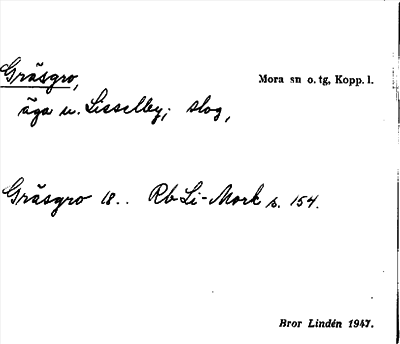 Gräsgro, Mora sn o. tg, Kopp. l.
äga u. Lisselby; slog,
Gräsgro 18.. Rb Li-Mork s. 154.
Bror Lindén 1947.